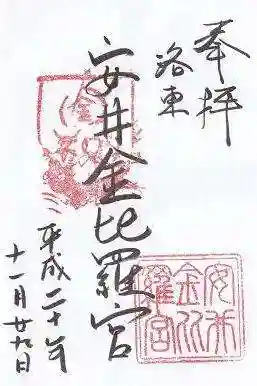 奉拝
洛東
安井金比羅宮
平成二十年
十一月廿九日
安井
金比
羅宮